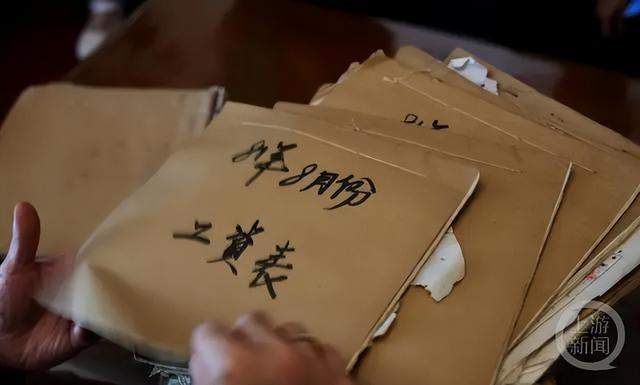 81年8月份
工资表
上游新闻